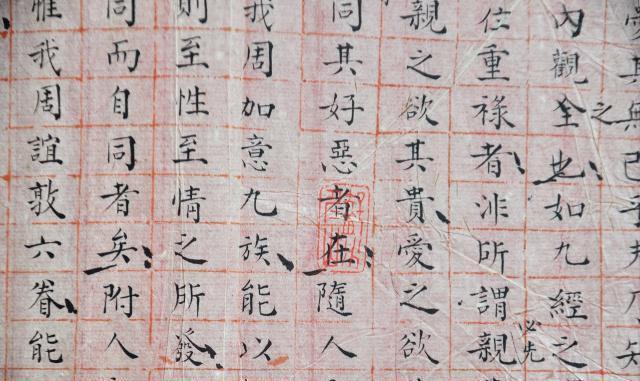 之
內觀全也如九經之
必先
位重祿者非所謂親
親之欲其貴愛之欲
同其好惡者在隨人
我周加意九族能以
則至性至情之所發
同而自同者矣附人
惟我周誼敦六眷能